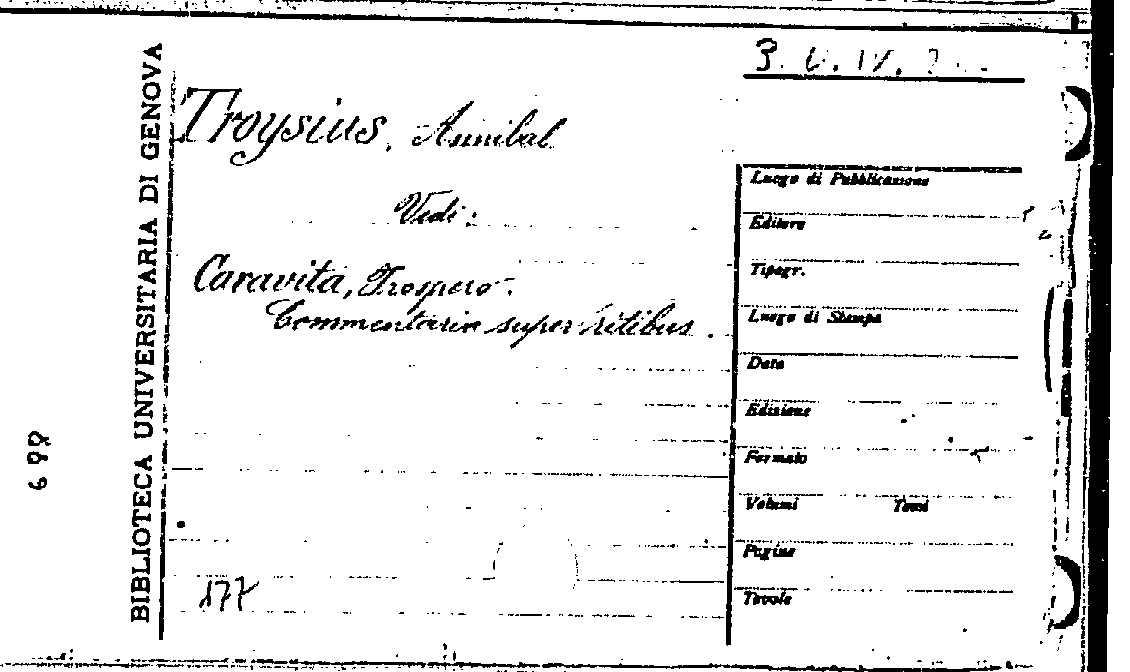 3. V. IV.
BIBLIOTECA UNIVERSITARIA DI GENOVA
Troysius, Annibal
Vedi:
Caravita, Prospero.
Commentaria super ritibus.
Luogo di Pubblicazione
Editore
Tipogr.
Luogo di Stampa
Data
Edizione
Formato
Volumi Tomi
Pagine
Tavole
177
688